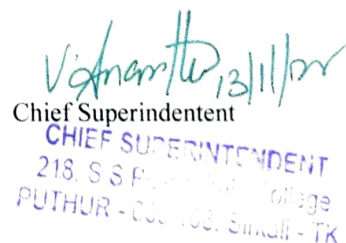 V. Anantha 13/11/22
Chief Superindentent
CHIEF SUPERINTENDENT
218, S S College
PUTHUR - Sirkali - TK